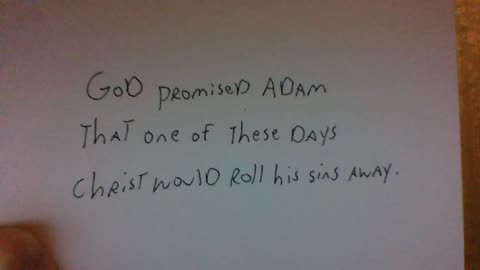 GOD PROMISED ADAM
THAT one of These DAYS
CHRIST WOULD Roll his sins AWAY.